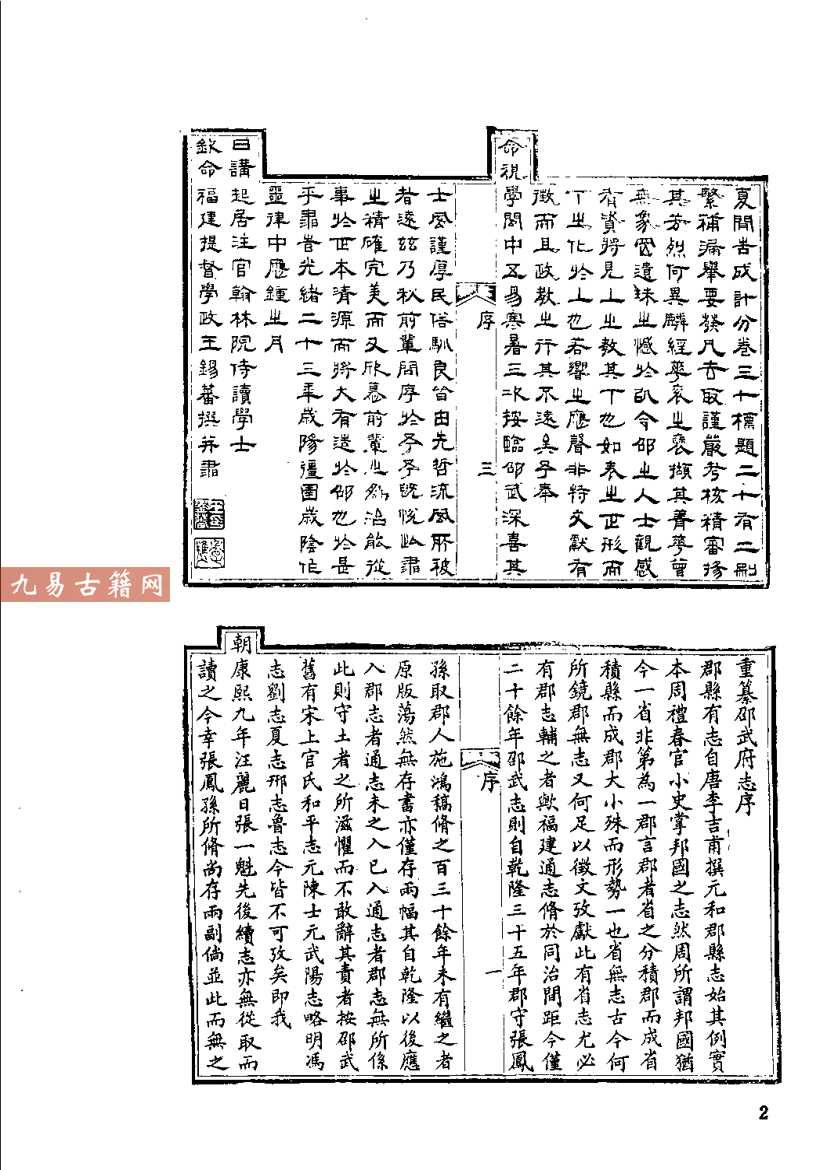 夏間告成計分卷三十標題二十有二刪
繁補漏舉要發凡去取謹嚴考核精審掞
其芳烈何異麟經華袞之褒擷其菁華曾
無象罔遺珠之憾於以令邵之人士觀感
有資將見上之教其下也如表之正形而
下之化於上也若響之應聲非特文獻有
徵而且政教之行其不遠矣予奉
命視學閩中五易寒暑三次按臨邵武深喜其
序
三
士風謹厚民俗馴良皆由先哲流風所被
者遠茲乃秋前輩問序於予予既悅此書
之精確完美而又欣慕前輩之為治能從
事於正本清源而將大有造於邵也於是
乎書告光緒二十三年歲陽彊圉歲陰作
噩律中應鍾之月
日講起居注官翰林院侍讀學士
欽命福建提督學政王錫蕃撰并書
重纂邵武府志序
郡縣有志自唐李吉甫撰元和郡縣志始其例實
本周禮春官小史掌邦國之志然周所謂邦國猶
今一省非第為一郡言郡者省之分積郡而成省
積縣而成郡大小殊而形勢一也省無志古今何
所鏡郡無志又何足以徵文攷獻此有省志尤必
有郡志輔之者歟福建通志脩於同治間距今僅
二十餘年邵武志則自乾隆三十五年郡守張鳳
序
一
孫取郡人施鴻稿脩之百三十餘年未有繼之者
原版蕩然無存書亦僅存兩幅其自乾隆以後應
入郡志者通志未之入已入通志者郡志無所係
此則守土者之所滋懼而不敢辭其責者按邵武
舊有宋上官氏和平志元陳士元武陽志略明馮
志劉志夏志邢志魯志今皆不可攷矣即我
朝康熙九年汪麗日張一魁先後續志亦無從取而
讀之今幸張鳳孫所脩尚存兩副倘並此而無之
九易古籍网
2